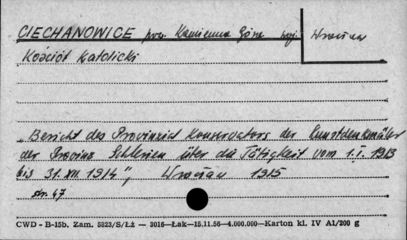 CIECHANOWICE pow. Kamienna Góra woj. Wrocław
Kościół Katolicki
"Bericht des Provinzial Konservators der Kunstdenkmäler
der Provinz Schlesien über die Tätigkeit vom 1.I. 1913
bis 31.XII 1914", Wrocław 1915
str. 47
CWD - B-15b. Zam. 5823/S/Łż — 2016—Łak—15.11.56—4.000.000—Karton kl. IV A1/200 g